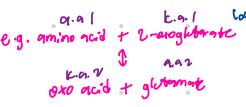 a.a 1 k.a. 1
e.g. amino acid + 2-oxoglutarate
↕
k.a. 2 a.a 2
oxo acid + glutamate